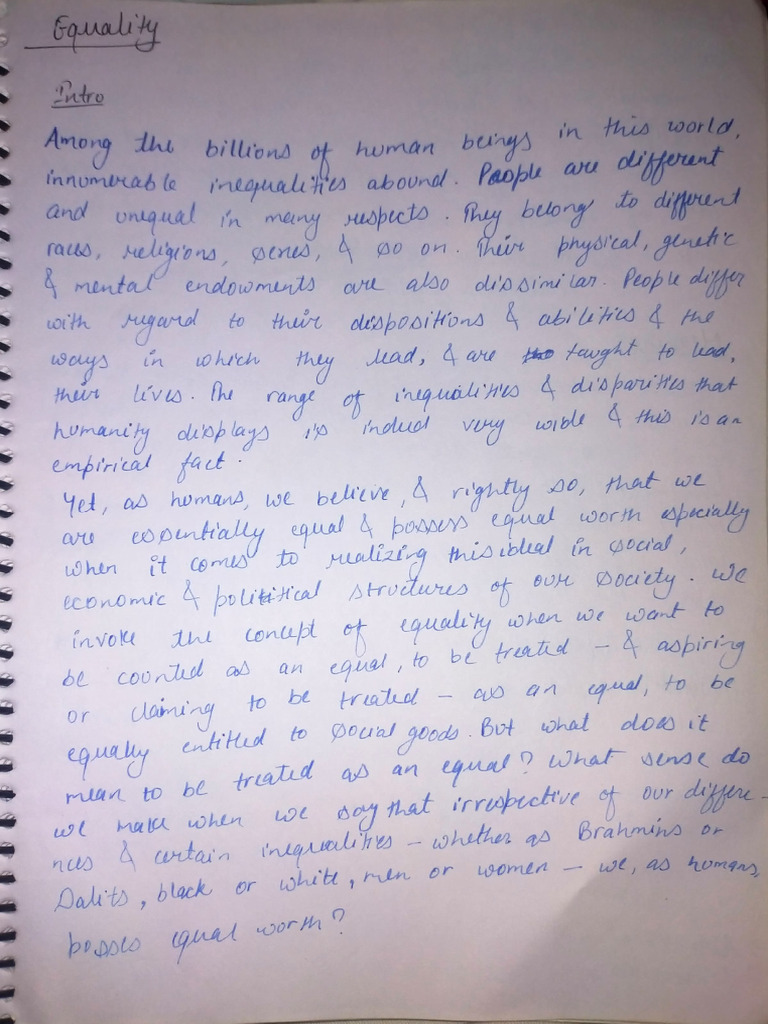 Equality
Intro
Among the billions of human beings in this world,
innumerable inequalities abound. People are different
and unequal in many respects. They belong to different
races, religions, sexes, & so on. Their physical, genetic
& mental endowments are also dissimilar. People differ
with regard to their dispositions & abilities & the
ways in which they lead, & are taught to lead,
their lives. The range of inequalities & disparities that
humanity displays is indeed very wide & this is an
empirical fact.
Yet, as humans, we believe, & rightly so, that we
are essentially equal & possess equal worth especially
when it comes to realizing this ideal in social,
economic & political structures of our society. We
invoke the concept of equality when we want to
be counted as an equal, to be treated – & aspiring
or claiming to be treated – as an equal, to be
equally entitled to social goods. But what does it
mean to be treated as an equal? What sense do
we make when we say that irrespective of our differe-
nces & certain inequalities – whether as Brahmins or
Dalits, black or white, men or women – we, as humans,
posses equal worth?